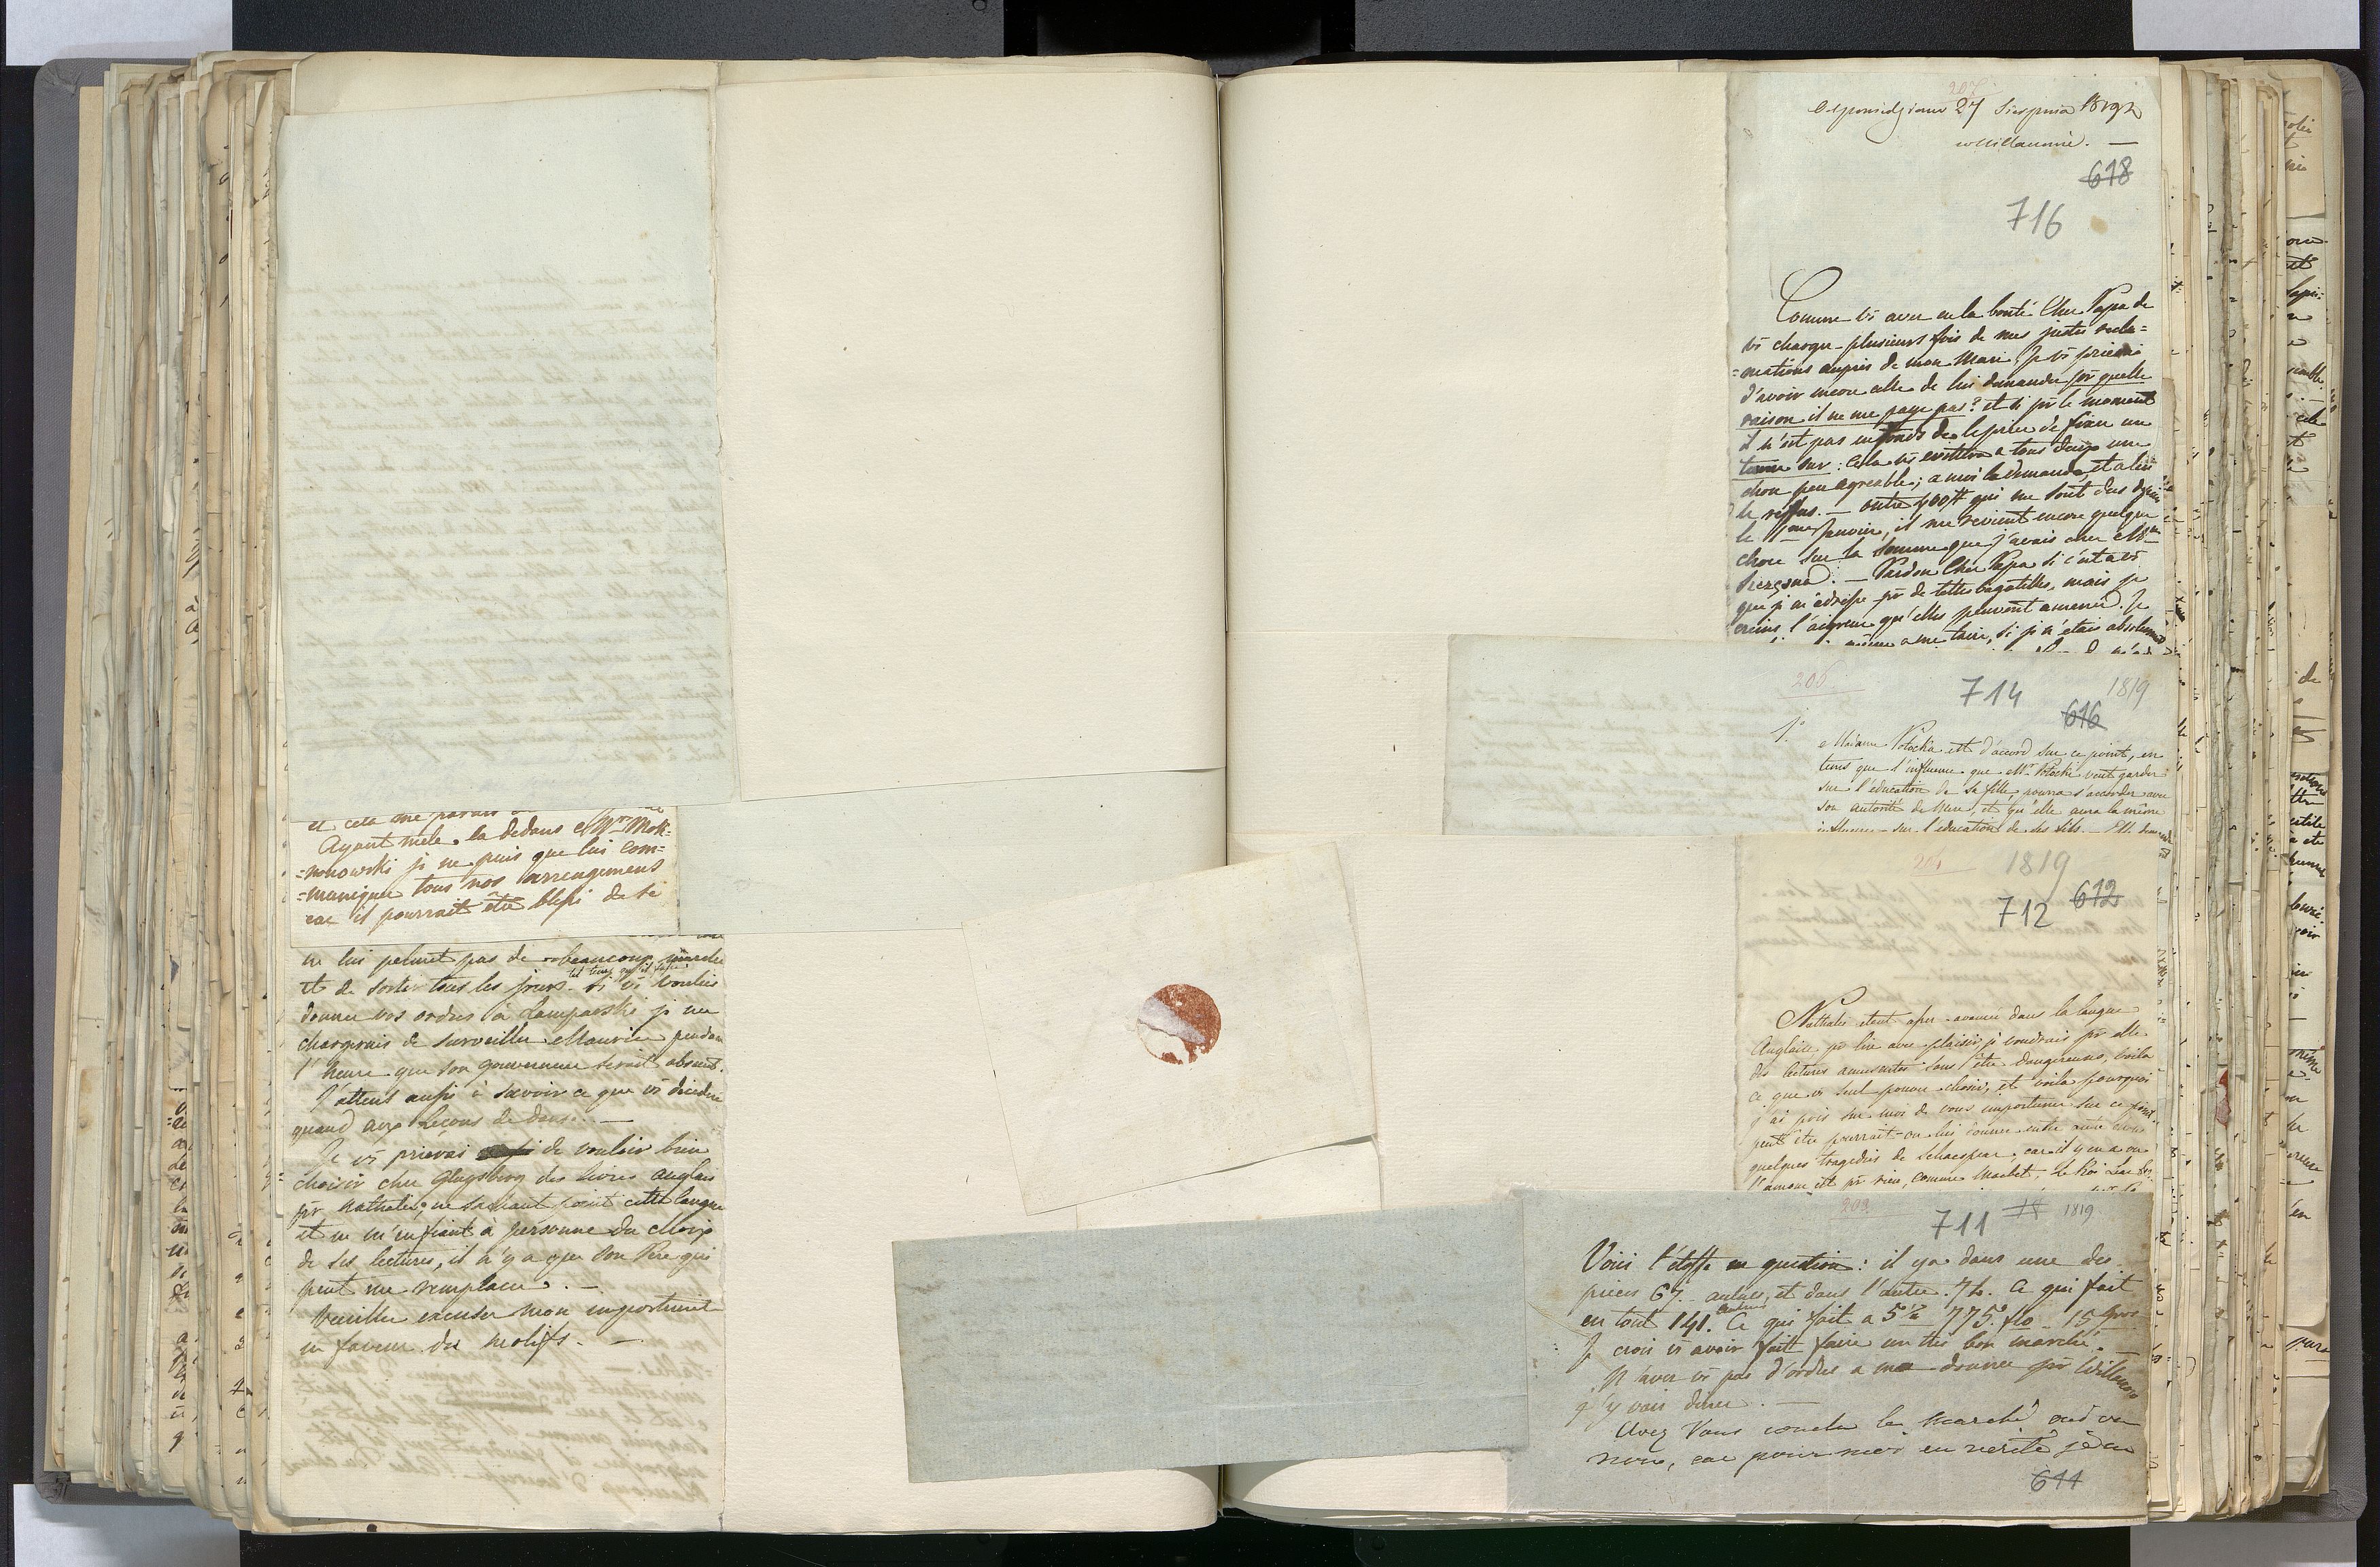 et cela me parait
Ayant mélé la dedans Mr Mok=
=ronowski je ne puis que lui com=
=muniquer tous nos arrengements
car il pourrait être blessé de se
ne lui permet pas de beaucoup marcher
et de sortir tous les jours. Si vs vouliez
tel tems qu'il fasse
donner vos ordres à Lamparski je me
chargerais de surveiller Maurice pendant
l'heure que son gouverneur serait absent.
J'attens aussi à savoir ce que vs décider
quand aux Leçons de danse. —
Je vs prierai de vouloir bien
choisir chez Glugsberg des livres anglais
pr Nathalie; ne sachant point cette langue
et ne m'enfiant à personne du choix
de ses lectures, il n'y a que son Pere qui
peut me remplacer. —
Veuillez excuser mon importunité
en faveur des motifs. —
207
Odpowiedziano 27 Sierpnia 1819
w Willanowie. —
618
716
Comme vs avez eu la bonté Cher Papa de
vs charger plusieurs fois de mes justes recla=
=mations auprès de mon Mari; Je vs prierai
d'avoir encore celle de lui demander pr quelle
raison il ne me paye pas? et si pr le moment
il n'est pas en fonds de le prier de fixer un
terme sur: Cela vs evittera a tous deux une
chose peu agréable; a moi la demande, et a lui
le réffus. — outre 400# qui me sont dus depuis
le 1er Janvier, il me revient encore quelque
chose sur la somme que j'avais chez Mr
. — Pardon Cher Papa si c'est a vs
que je m'adresse pr de telles bagatelles, mais je
crains l'aigreur qu'elles peuvent amener. Je
même a me taire, si je n'étais absolument
206
714
1819
616
1o
Madame Potocka est d'accord sur ce point, en
tems que l'influence que Mr Potocki veut garder
sur l'éducation de sa fille, pourra s'accorder avec
son autorité de Mere, et qu'elle aura la même
influence sur l'education de ses fils.
204
1819
612
712
Nathalie etant assez avancée dans la langue
Anglaise pr lire avec plaisir, je voudrais pr elle
des lectures amusantes sans être dangereuses, voila
ce que vs seul pouvez choisir, et voila pourquoi
j'ai pris sur moi de vous importuner sur ce point.
peut être pourrait-on lui donner entre autre chose
quelques tragedies de Schaespear, car il y en a ou
l'amour est pr rien, comme Macbet, le Roi Lear
203
711
1819
Voici l'étoffe en question: il y a dans une des
pièces 67. aulnes, et dans l'autre 74. Ce qui fait
en tout 141. aulnes Ce qui fait a 5 1/2 775. flo 15 gros
Je crois vs avoir fait faire un très bon marché. —
N'avez vs pas d'ordres a me donner pr Willanow
j'y vais diner. —
Avez Vous conclu le marché oui ou
non, car pour moi en verité je
611